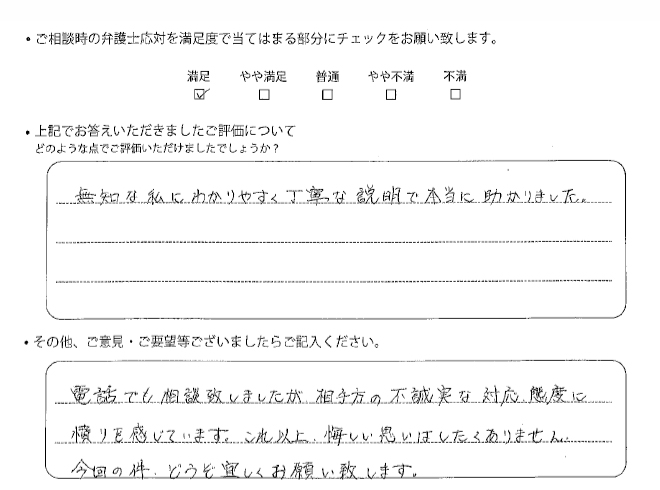 ・ご相談時の弁護士応対を満足度で当てはまる部分にチェックをお願い致します。
満足 やや満足 普通 やや不満 不満
☑ □ □ □ □
・上記でお答えいただきましたご評価について
どのような点でご評価いただけましたでしょうか？
無知な私にわかりやすく丁寧な説明で本当に助かりました。
・その他、ご意見・ご要望等ございましたらご記入ください。
電話でも相談致しましたが、相手方の不誠実な対応、態度に
憤りを感じています。これ以上、悔しい思いはしたくありません。
今回の件、どうぞ宜しくお願い致します。